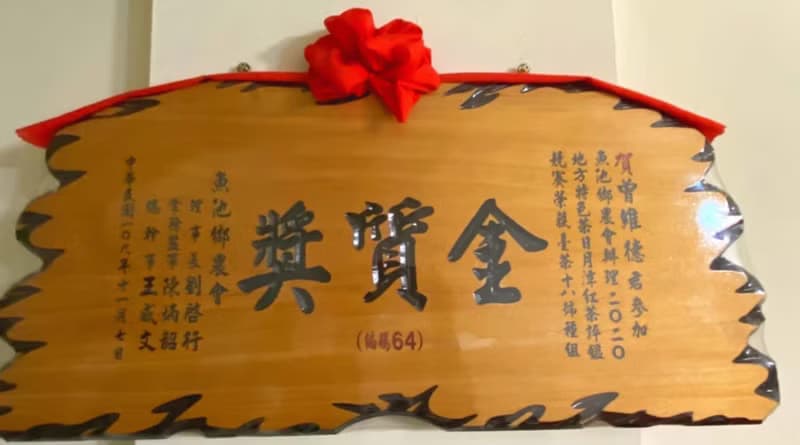 賀曾維德君參加
魚池鄉農會辦理二〇二〇
地方特色茶日月潭紅茶評鑑
競賽榮獲臺茶十八號種組
金質獎
(編號64)
魚池鄉農會
理事長劉啓行
常務監事陳炳韶
總幹事王威文
中華民國一〇八年十一月七日